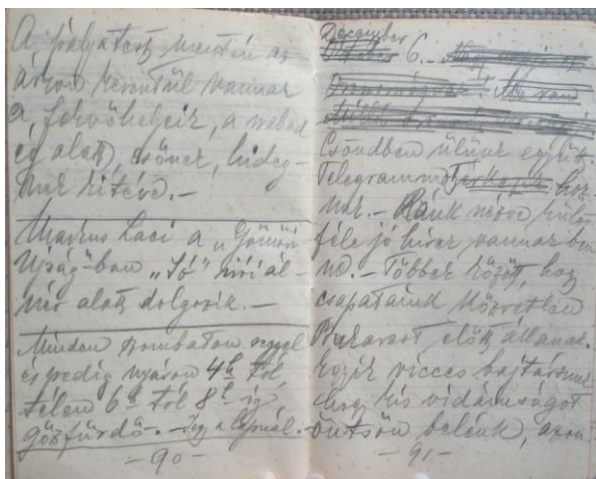 A pályatest mentén az
árkon keresztül vannak
a fekvőhelyeik, a szabad
ég alatt, esőnek, hideg-
nek kitéve.-
Markus Laci a "Gömöri
Ujság"-ban "Jó" írói ál-
név alatt dolgozik.-
Minden szombaton reggel
és pedig nyáron 4h tól,
télen 6h tól 8h ig
gőzfürdő.-
-90-
December
6.-
Csöndben ülünk együtt.
Telegrammot hoz-
nak.- Ránk nézve külön-
féle jó hírek vannak ben-
ne.- Többek között, hogy
csapataink közvetlen
Bukarest előtt állanak.
Egyik vicces bajtársunk
hogy kis vidámságot
öntsön belénk, azon
-91-